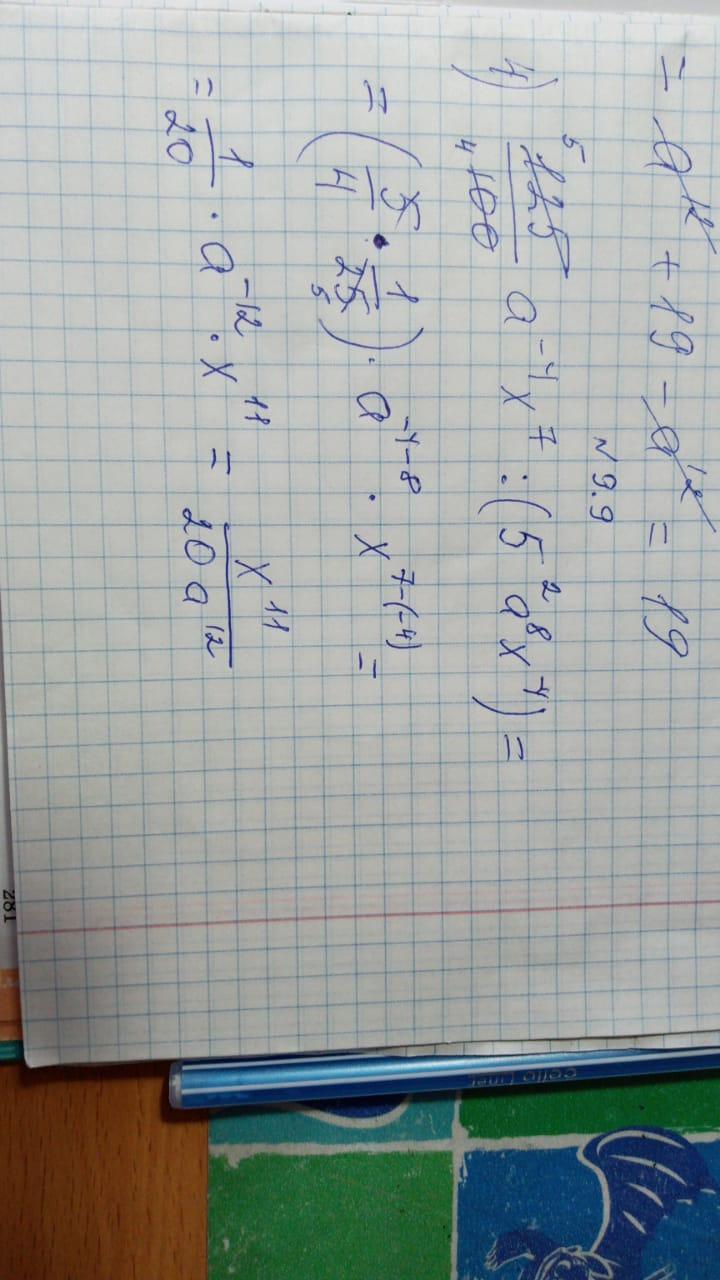 = a¹² + 19 - a¹² = 19
№ 9.9
4) ⁵125/₄100 a⁻⁴x⁷ : (5²a⁸x⁻⁴) =
= (5/4 · 1/25₅) · a⁻⁴⁻⁸ · x⁷⁻⁽⁻⁴⁾ =
= 1/20 · a⁻¹² · x¹¹ = x¹¹/20a¹²
281
cello Liner